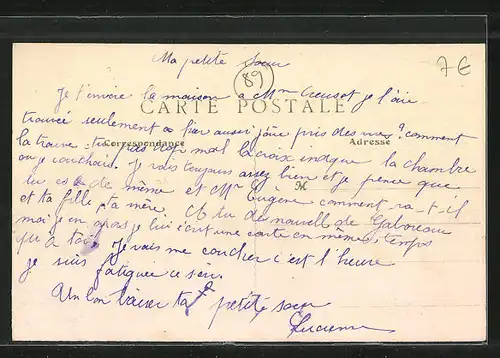 Ma petite Soeur
89
7€
Je t'envoie la maison a Mme Creusot je l'ai
CARTE POSTALE
trouvée seulement a hier aussi j'ône pris des vus? comment
Correspondance
Adresse
la trouve tu pas trop mal la croix indique la chambre
ou y couchais. Je vais toujours assez bien et je pence que
M
tu es de même et Mr Eugène comment va-t-il
et ta fille ta mère. As tu de nouvell de Gaboreau
moi je en apas je lui écrit une carte en même temps
qu a toi. Je vais me coucher c'est l'heure
Je suis fatiguée ce soir.
Un bon baiser ta petite soeur
Lucienne